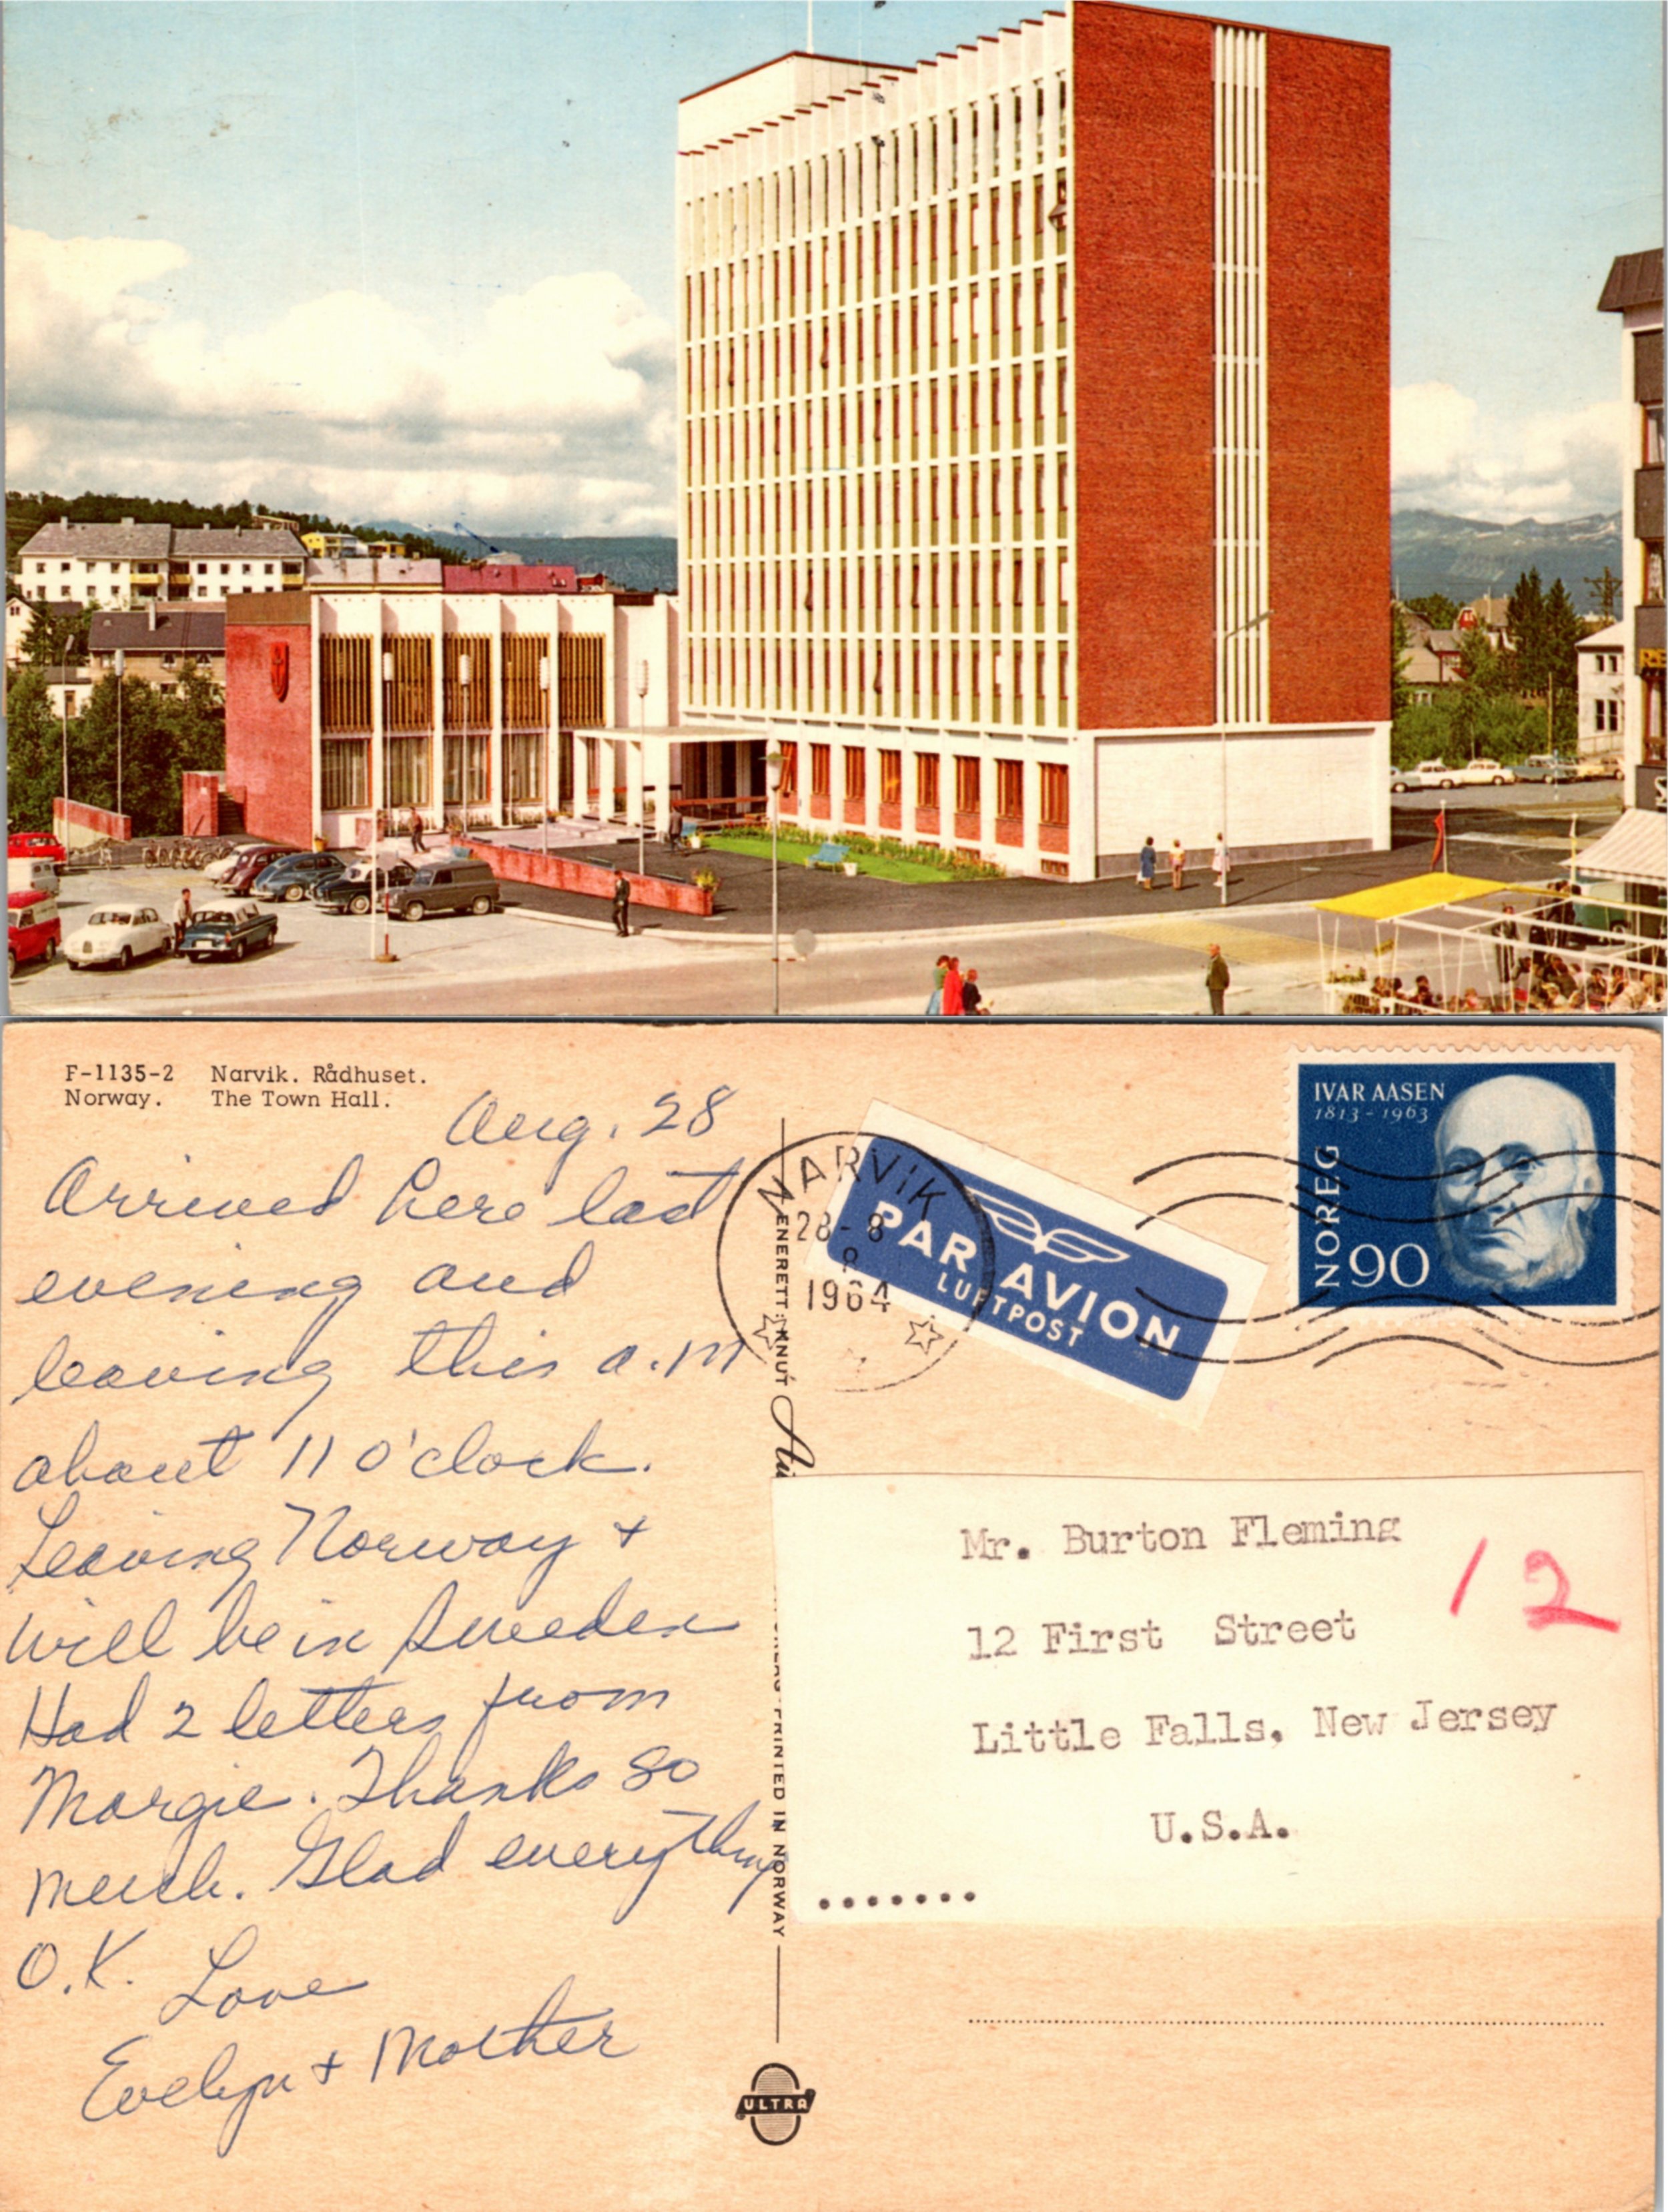 F-1135-2 Narvik. Rådhuset.
Norway. The Town Hall.
Aug. 28
Arrived here last
evening and
leaving this a.m
about 11 o'clock.
Leaving Norway +
will be in Sweden
Had 2 letters from
Margie. Thanks so
much. Glad everything
O.K. Love
Evelyn + Mother
ENERETT: KNUT
PRINTED IN NORWAY
ULTRA
NARVIK
28-8
1964
PAR AVION
LUFTPOST
IVAR AASEN
1813-1963
NOREG
90
Mr. Burton Fleming
12
12 First Street
Little Falls, New Jersey
U.S.A.
.......